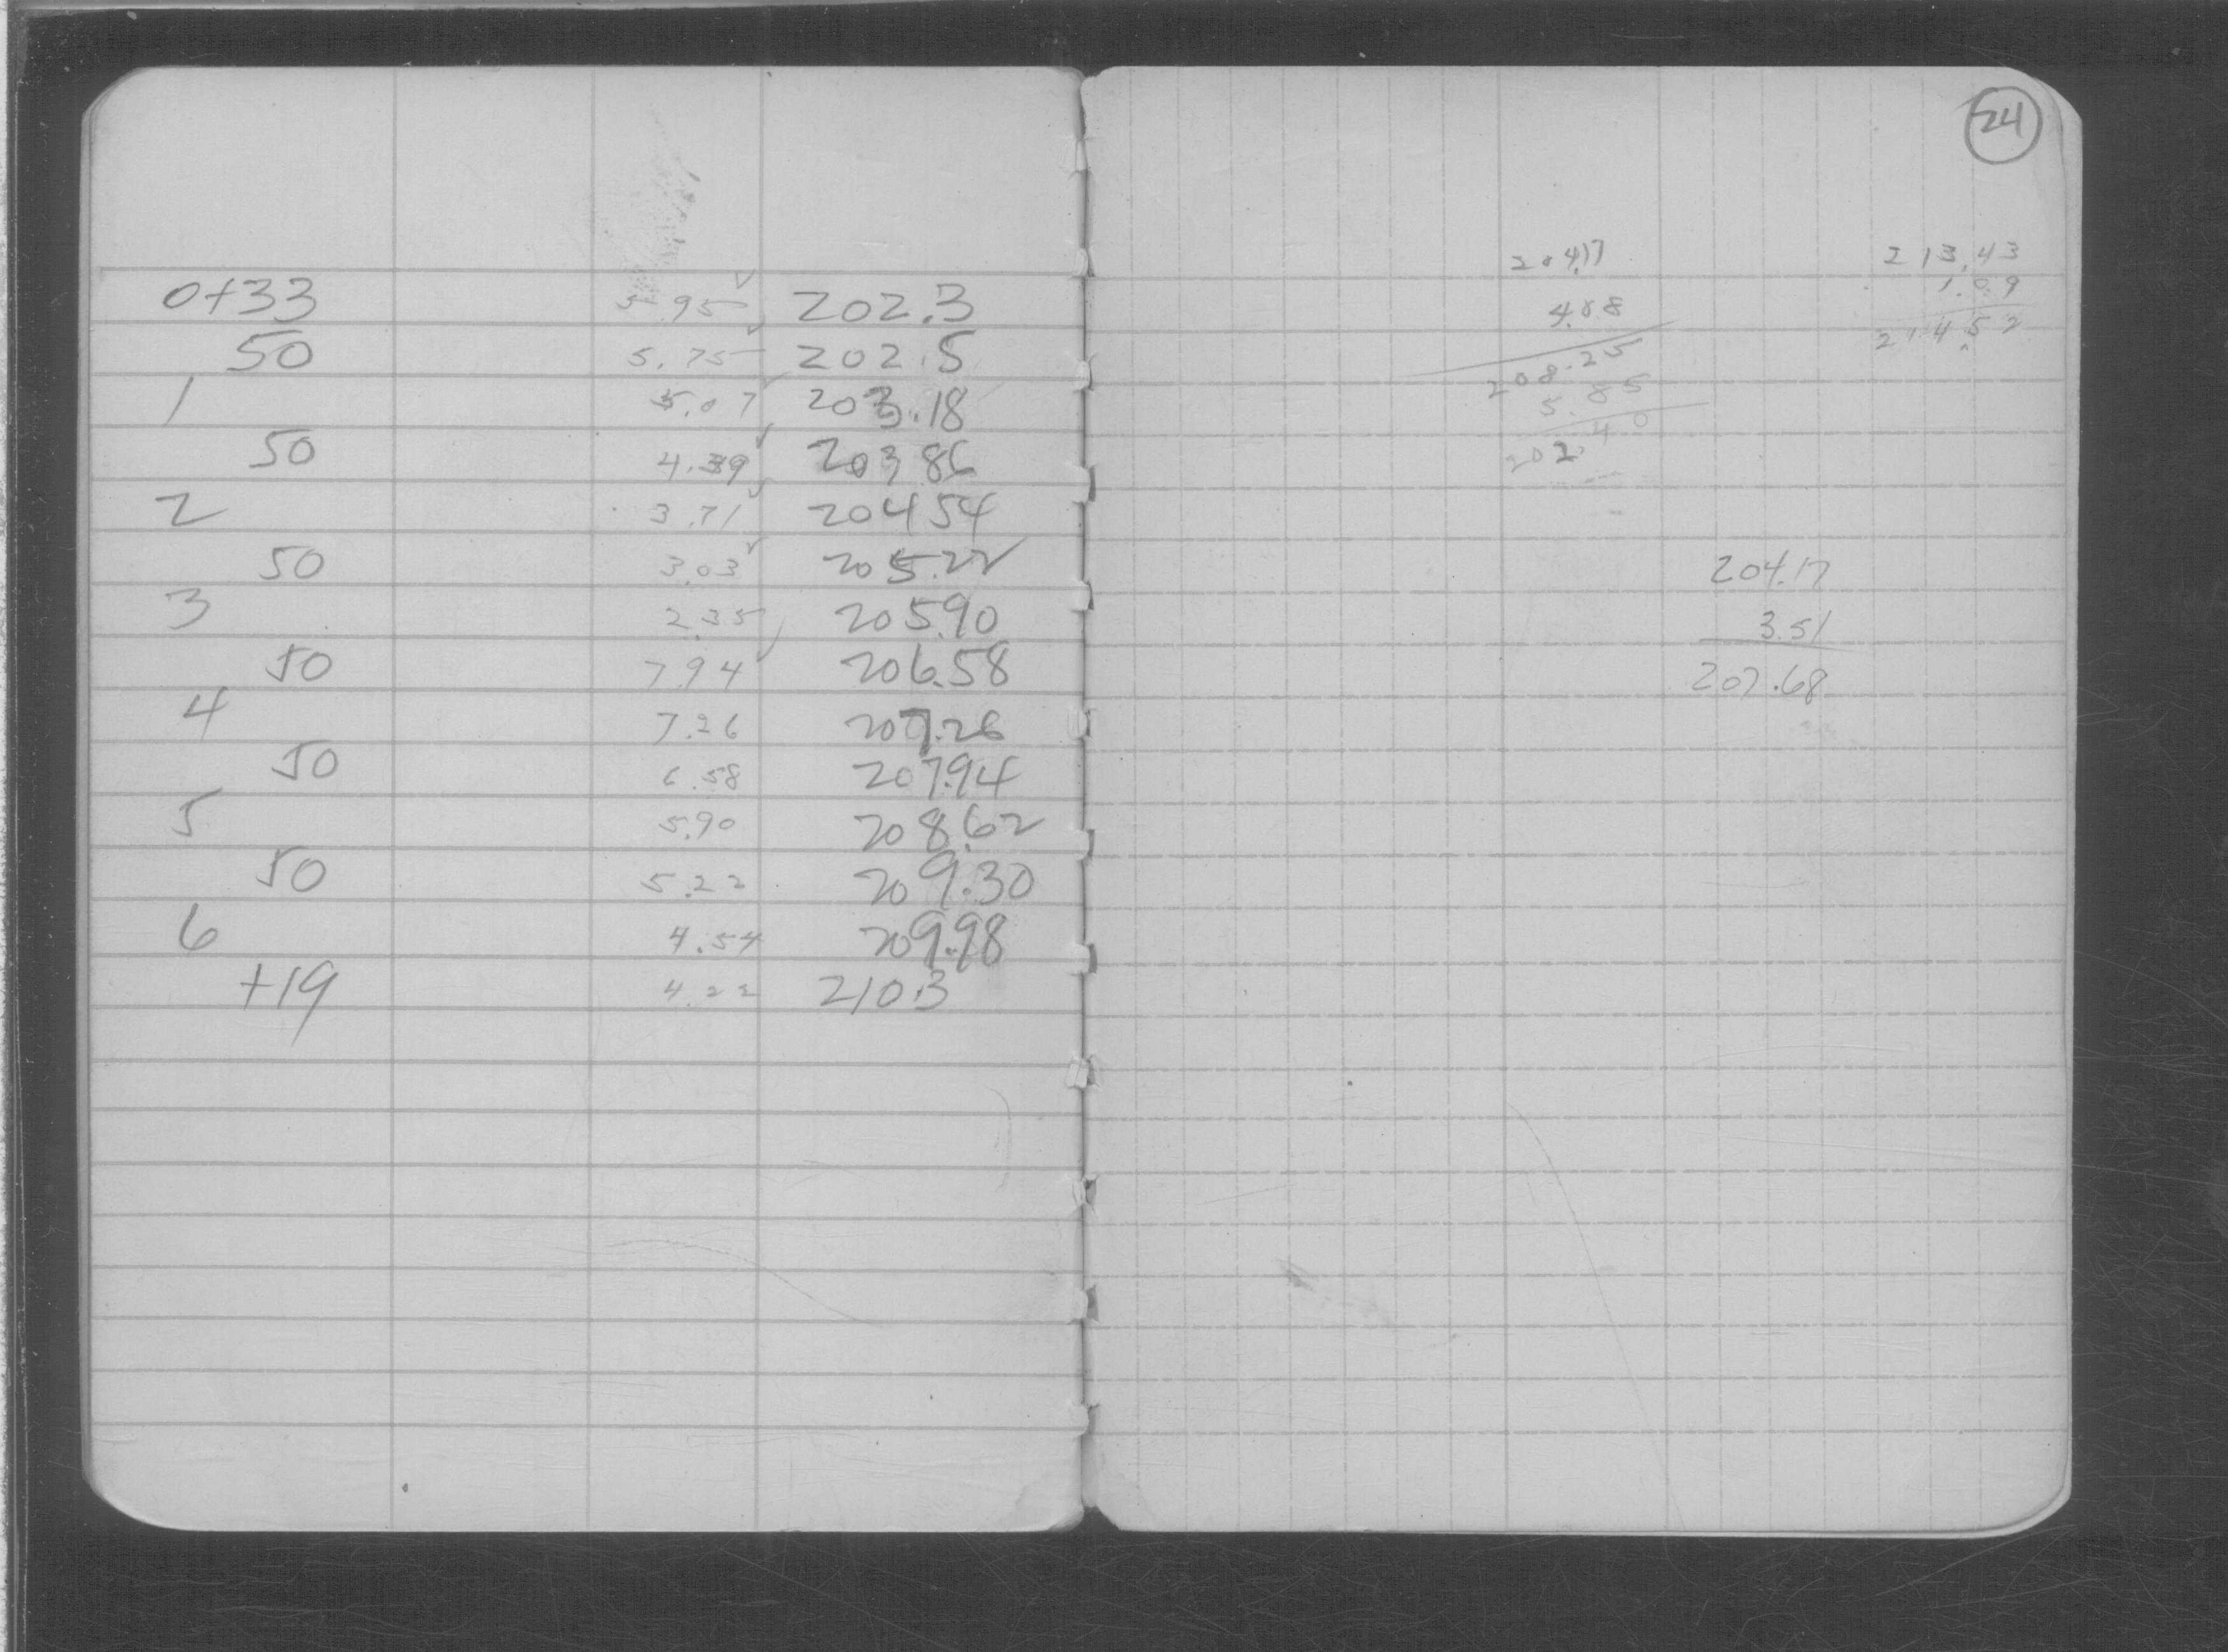 0+33 5.95 202.3
50 5.75 202.5
1 5.07 203.18
50 4.39 203.86
2 3.71 204.54
50 3.03 205.22
3 2.35 205.90
50 7.94 206.58
4 7.26 207.26
50 6.58 207.94
5 5.90 208.62
50 5.22 209.30
6 4.54 209.98
+19 4.22 210.3
24
204.17
4.08
208.25
5.85
202.40
213.43
1.09
214.52
204.17
3.51
207.68